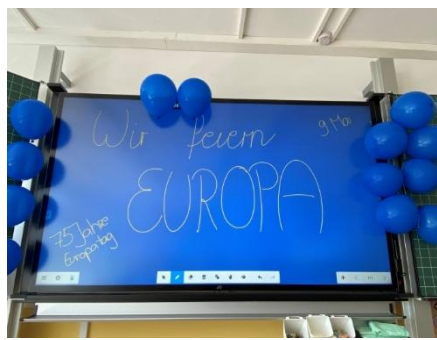 Wir feiern
9 Mai
EUROPA
75 Jahre
Europatag